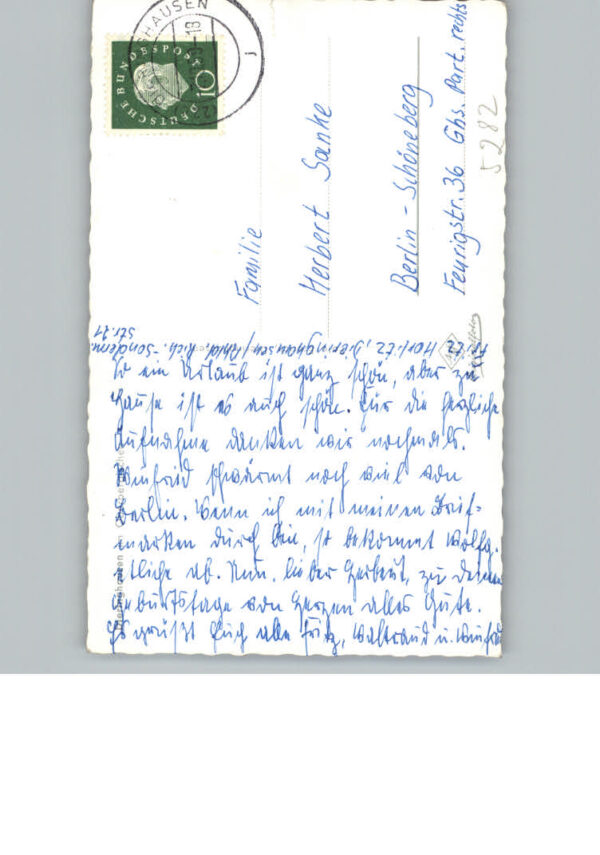 DEUTSCHE BUNDESPOST
10
Familie
Herbert Sanke
Berlin-Schöneberg
Feurigstr. 36 Ghs. Part. rechts
5282
Fritz Horlitz, Dieringhausen/Rhld. Rich.-Sondermann
Str. 21
So ein Urlaub ist ganz schön, aber zu
Hause ist es auch schön. Für die herzliche
Aufnahme danken wir nochmals.
Winfried schwärmt noch viel von
Berlin. Wenn ich mit meinen Brief-
marken durch bin, so bekommt Wolfg.
etliche ab. Nun, lieber Herbert, zu deinem
Geburtstage von Herzen alles Gute.
Es grüßt Euch alle Fritz, Waltraud u. Winfried